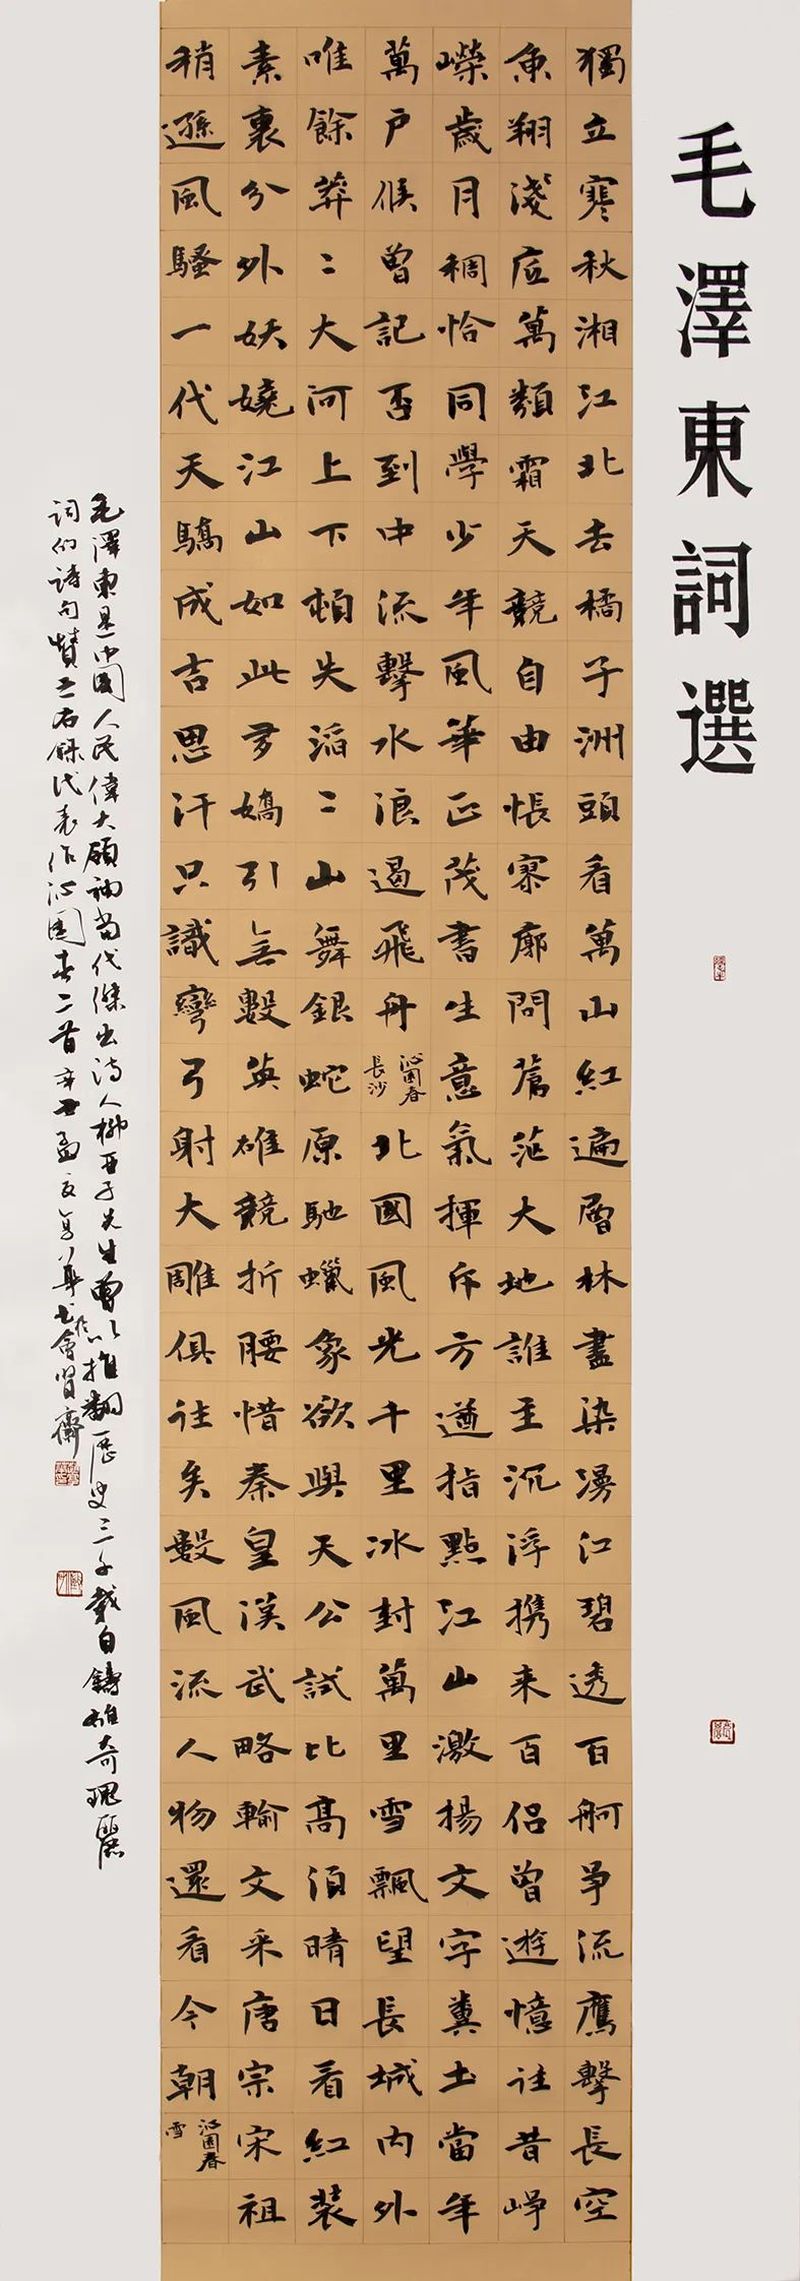 毛澤東詞選
獨立寒秋湘江北去橘子洲頭看萬山紅遍層林盡染漫江碧透百舸爭流鷹擊長空
魚翔淺底萬類霜天競自由悵寥廓問蒼茫大地誰主沉浮携来百侣曾遊憶往昔崢
嶸歲月稠恰同學少年風華正茂書生意氣揮斥方遒指點江山激揚文字糞土當年
萬户侯曾記否到中流擊水浪遏飛舟
沁園春
長沙
北國風光千里冰封萬里雪飄望長城内外
唯餘莽〻大河上下頓失滔〻山舞銀蛇原馳蠟象欲與天公試比高須晴日看紅装
素裹分外妖嬈江山如此多嬌引無數英雄競折腰惜秦皇漢武略輸文采唐宗宋祖
稍遜風騷一代天驕成吉思汗只識彎弓射大雕俱往矣數風流人物還看今朝
沁園春
雪
毛澤東是中國人民偉大領袖當代傑出詩人柳亞子先生曾以推翻歷史三千載自鑄雄奇瑰麗
詞的詩句贊之右録代表作沁園春二首辛丑孟夏華書於會賢齋